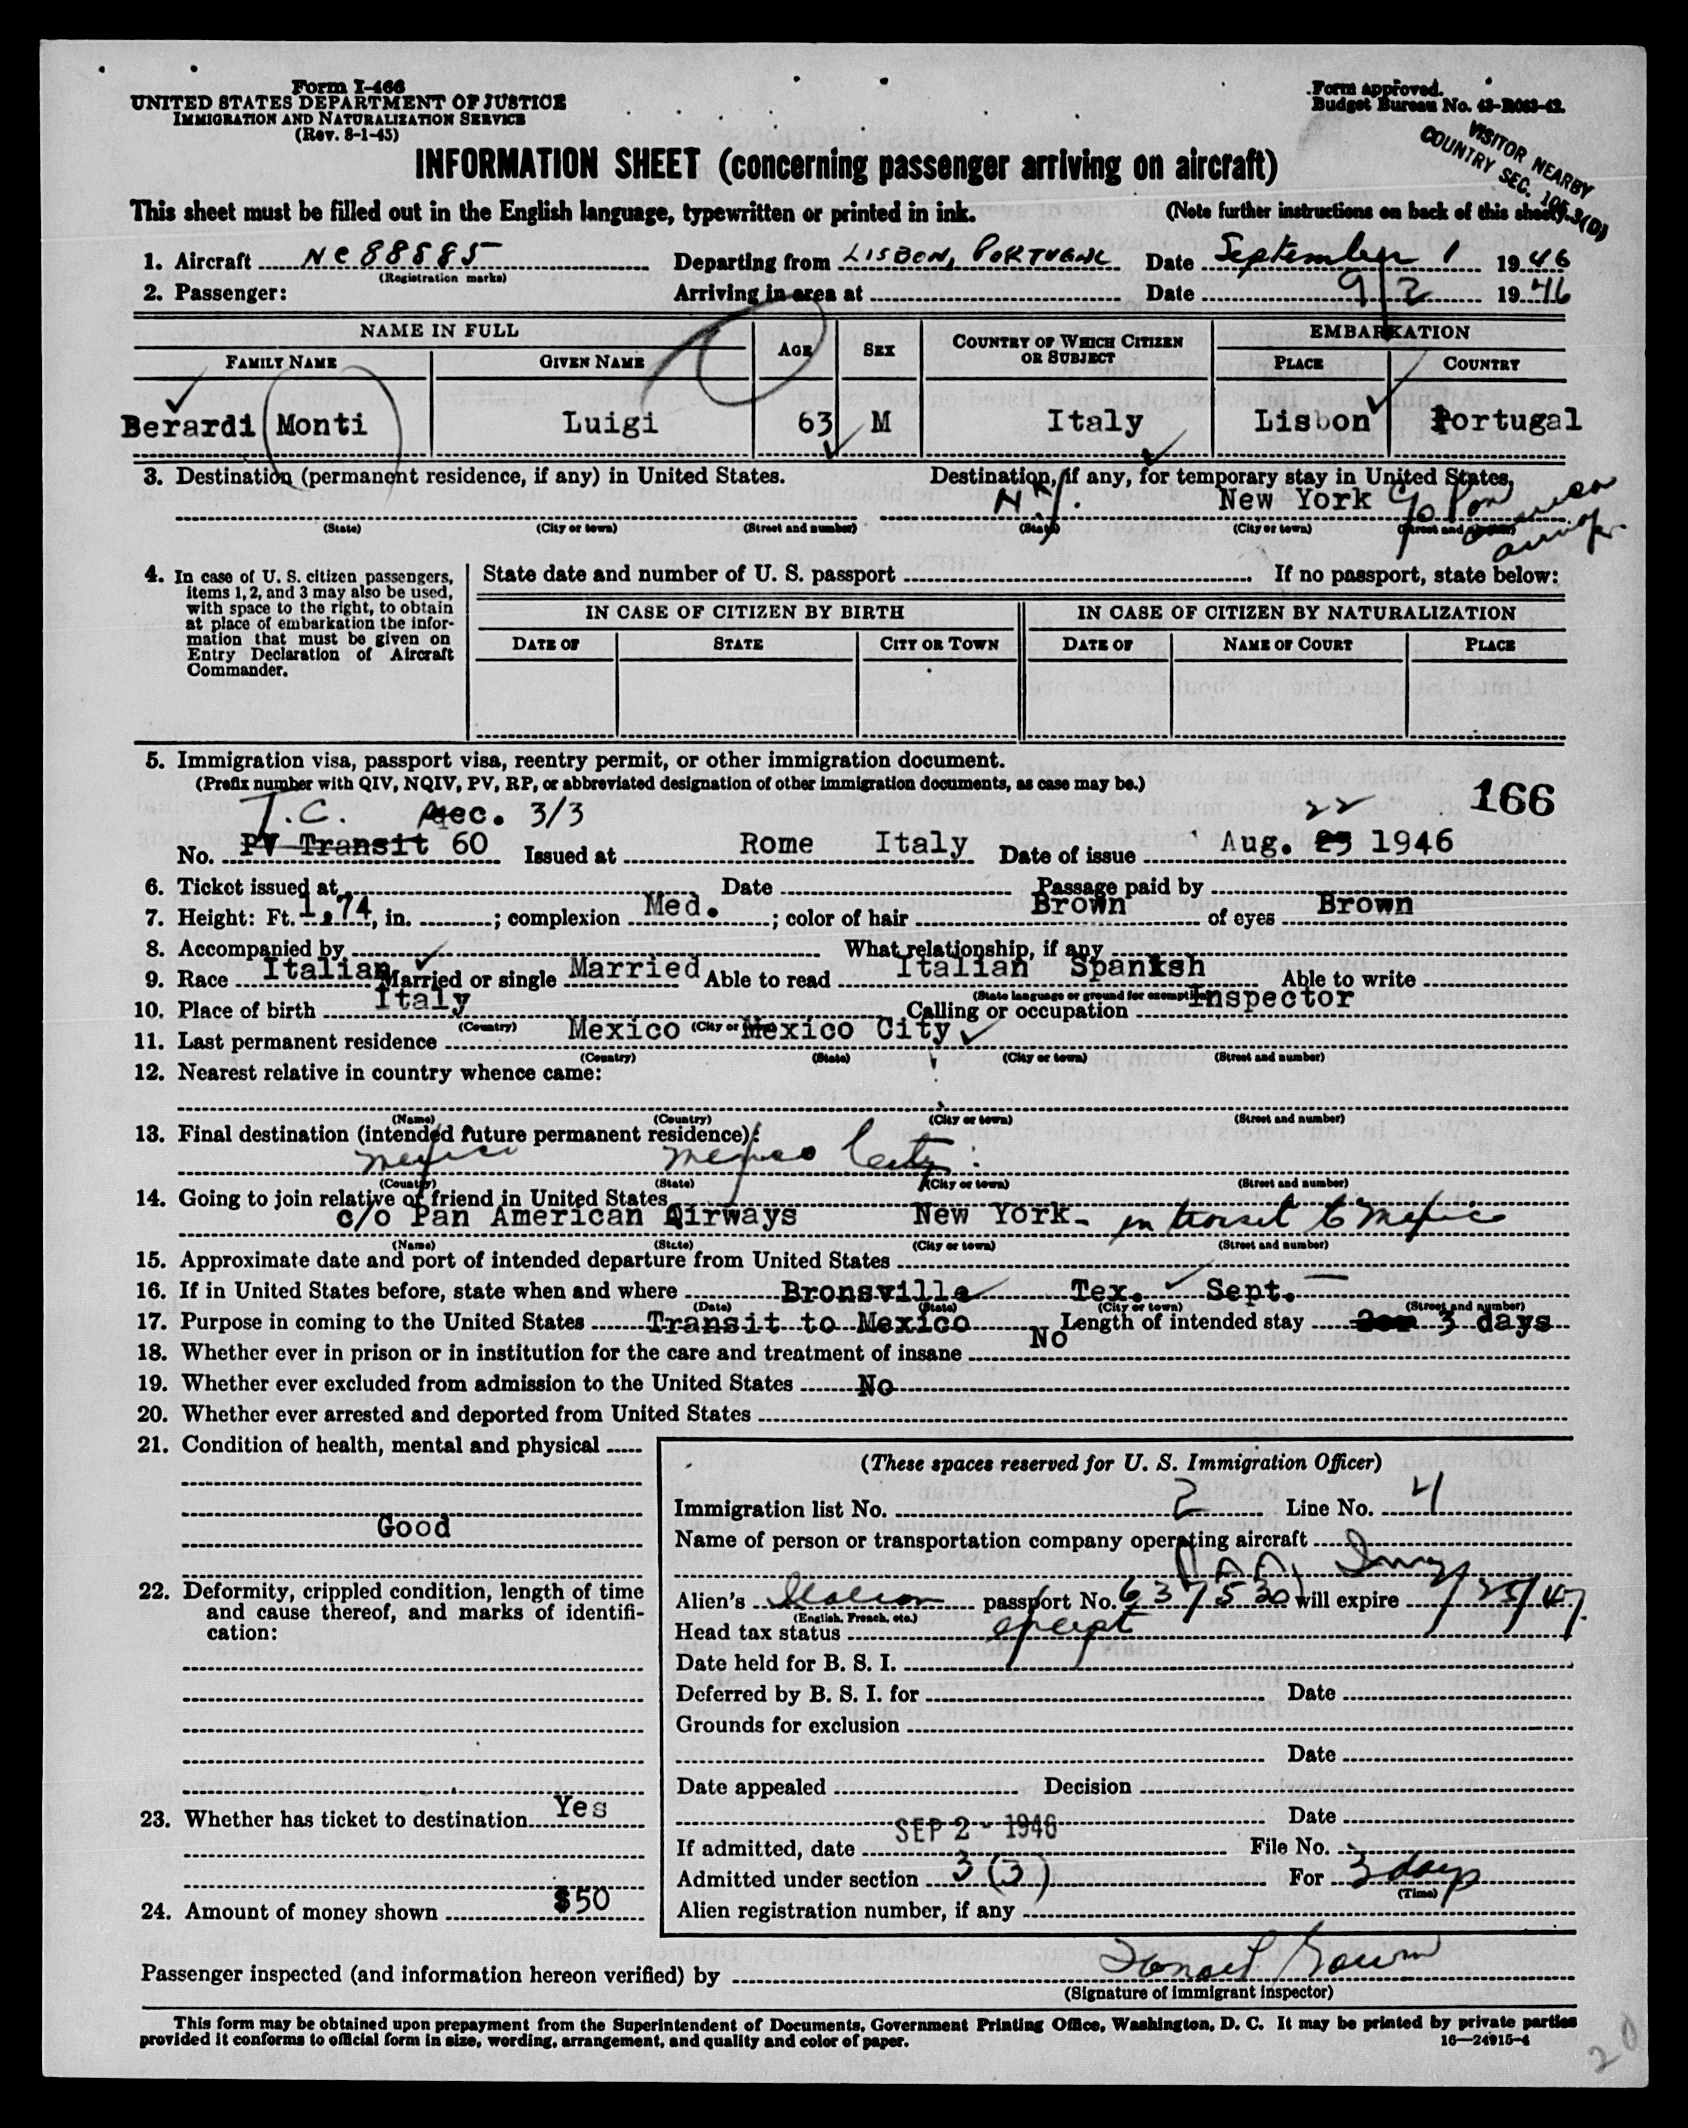 Form I-466
UNITED STATES DEPARTMENT OF JUSTICE
IMMIGRATION AND NATURALIZATION SERVICE
(Rev. 8-1-45)
Form approved.
Budget Bureau No. 43-R063-42.
VISITOR NEARBY
COUNTRY SEC. 105.3(D)
INFORMATION SHEET (concerning passenger arriving on aircraft)
This sheet must be filled out in the English language, typewritten or printed in ink. (Note further instructions on back of this sheet)
1. Aircraft NC88585 Departing from LISBON, PORTUGAL Date September 1 1946
(Registration marks)
2. Passenger: Arriving in area at Date 9/2 1946
NAME IN FULL AGE SEX COUNTRY OF WHICH CITIZEN OR SUBJECT EMBARKATION
FAMILY NAME GIVEN NAME PLACE COUNTRY
Berardi Monti Luigi 63 M Italy Lisbon Portugal
3. Destination (permanent residence, if any) in United States. Destination, if any, for temporary stay in United States.
N.Y. New York c/o Pan American Airways
(State) (City or town) (Street and number) (State) (City or town) (Street and number)
4. In case of U. S. citizen passengers, items 1, 2, and 3 may also be used, with space to the right, to obtain at place of embarkation the information that must be given on Entry Declaration of Aircraft Commander.
State date and number of U. S. passport If no passport, state below:
IN CASE OF CITIZEN BY BIRTH IN CASE OF CITIZEN BY NATURALIZATION
DATE OF STATE CITY OR TOWN DATE OF NAME OF COURT PLACE
5. Immigration visa, passport visa, reentry permit, or other immigration document.
(Prefix number with QIV, NQIV, PV, RP, or abbreviated designation of other immigration documents, as case may be.)
166
T.C. Sec. 3/3 22
No. PV Transit 60 Issued at Rome Italy Date of issue Aug. 23 1946
6. Ticket issued at Date Passage paid by
7. Height: Ft. 1.74, in. ; complexion Med. ; color of hair Brown of eyes Brown
8. Accompanied by What relationship, if any
9. Race Italian Married or single Married Able to read Italian Spanish Able to write
(State language or ground for exemption)
10. Place of birth Italy Calling or occupation Inspector
(Country) (City or town)
11. Last permanent residence Mexico Mexico City
(Country) (State) (City or town) (Street and number)
12. Nearest relative in country whence came:
(Name) (Country) (City or town) (Street and number)
13. Final destination (intended future permanent residence):
Mexico Mexico City
(Country) (State) (City or town) (Street and number)
14. Going to join relative or friend in United States
c/o Pan American Airways New York- in transit to Mexico
(Name) (State) (City or town) (Street and number)
15. Approximate date and port of intended departure from United States
16. If in United States before, state when and where Bronsville Tex. Sept.
(Date) (State) (City or town) (Street and number)
17. Purpose in coming to the United States Transit to Mexico Length of intended stay 3 days
18. Whether ever in prison or in institution for the care and treatment of insane No
19. Whether ever excluded from admission to the United States No
20. Whether ever arrested and deported from United States
21. Condition of health, mental and physical
Good
22. Deformity, crippled condition, length of time and cause thereof, and marks of identification:
23. Whether has ticket to destination Yes
24. Amount of money shown $50
(These spaces reserved for U. S. Immigration Officer)
Immigration list No. 2 Line No. 4
Name of person or transportation company operating aircraft
PAA
Alien's Italian passport No. 637530 will expire 7/25/47.
(English, French, etc.)
Head tax status
Date held for B. S. I.
Deferred by B. S. I. for Date
Grounds for exclusion
Date
Date appealed Decision
Date
If admitted, date SEP 2 - 1946 File No.
Admitted under section 3 (3) For 3 days
(Time)
Alien registration number, if any
Passenger inspected (and information hereon verified) by
(Signature of immigrant inspector)
This form may be obtained upon prepayment from the Superintendent of Documents, Government Printing Office, Washington, D. C. It may be printed by private parties
provided it conforms to official form in size, wording, arrangement, and quality and color of paper. 16—24915-4
20